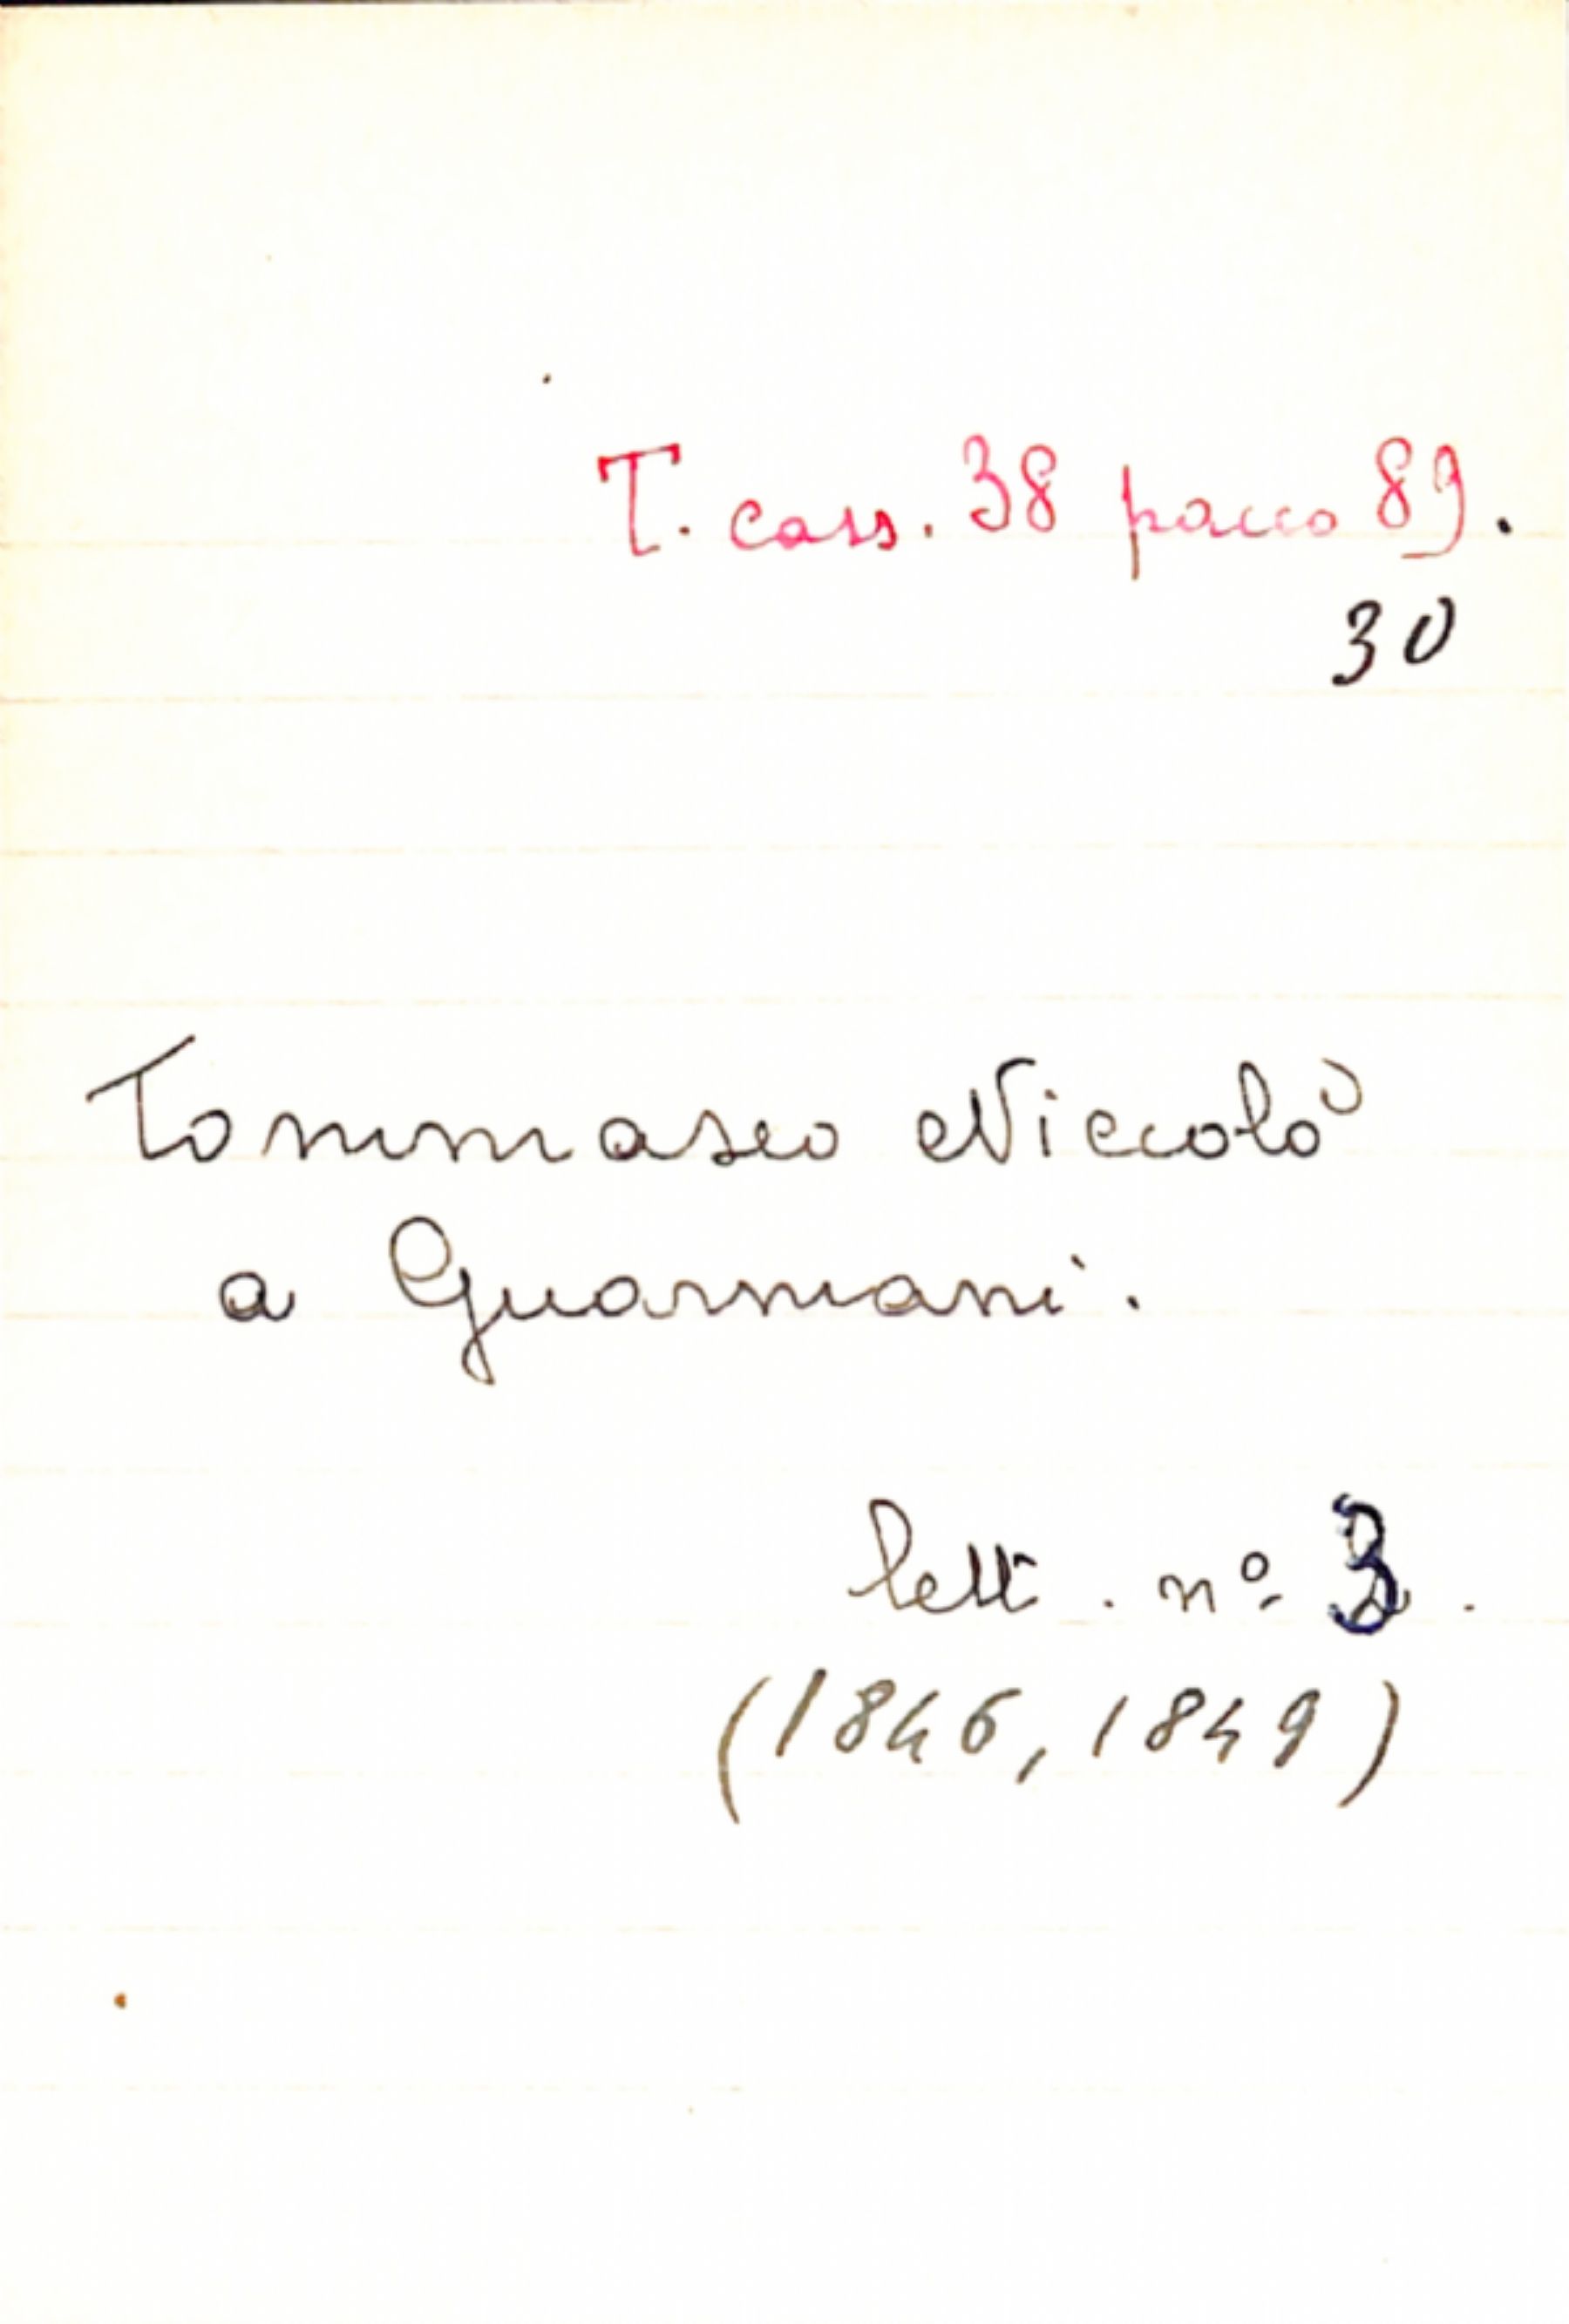 T. cass. 38 pacco 89.
30
Tommaseo Niccolò
a Guarmani.
lett. nº 3.
(1846, 1849)